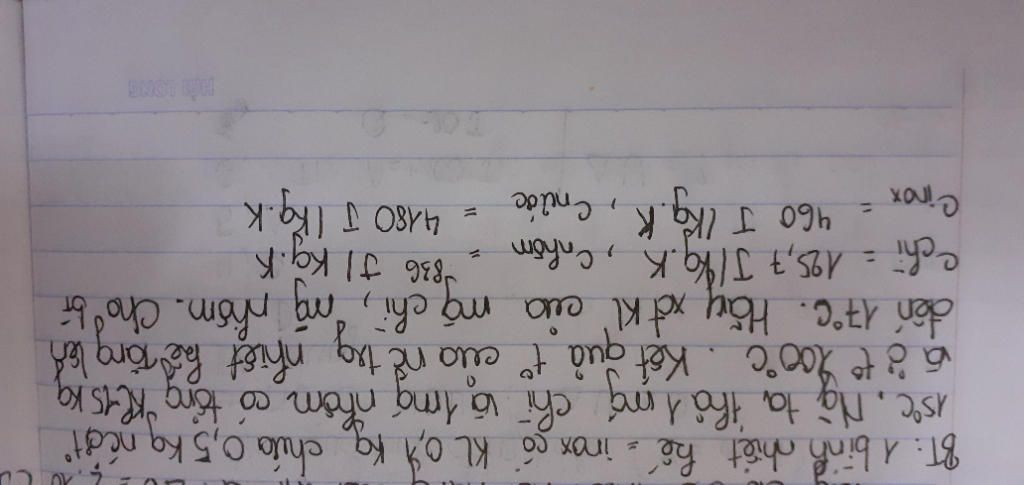 BT: 1 bình nhiệt kế = inox có KL 0,1 kg chứa 0,5 kg nc ở t°
15°C. Ng ta thả 1 mg chì và 1 mg nhôm có tổng KL 15 kg
và ở t° 100°C. Kết quả t° của nc trg nhiệt kế tăng lên
đến 17°C. Hãy xđ KL của mg chì, mg nhôm. Cho bt
C chì = 125,7 J/kg.K, C nhôm = 836 J/kg.K
C inox = 460 J/kg.K, C nước = 4180 J/kg.K
HẢI LONG